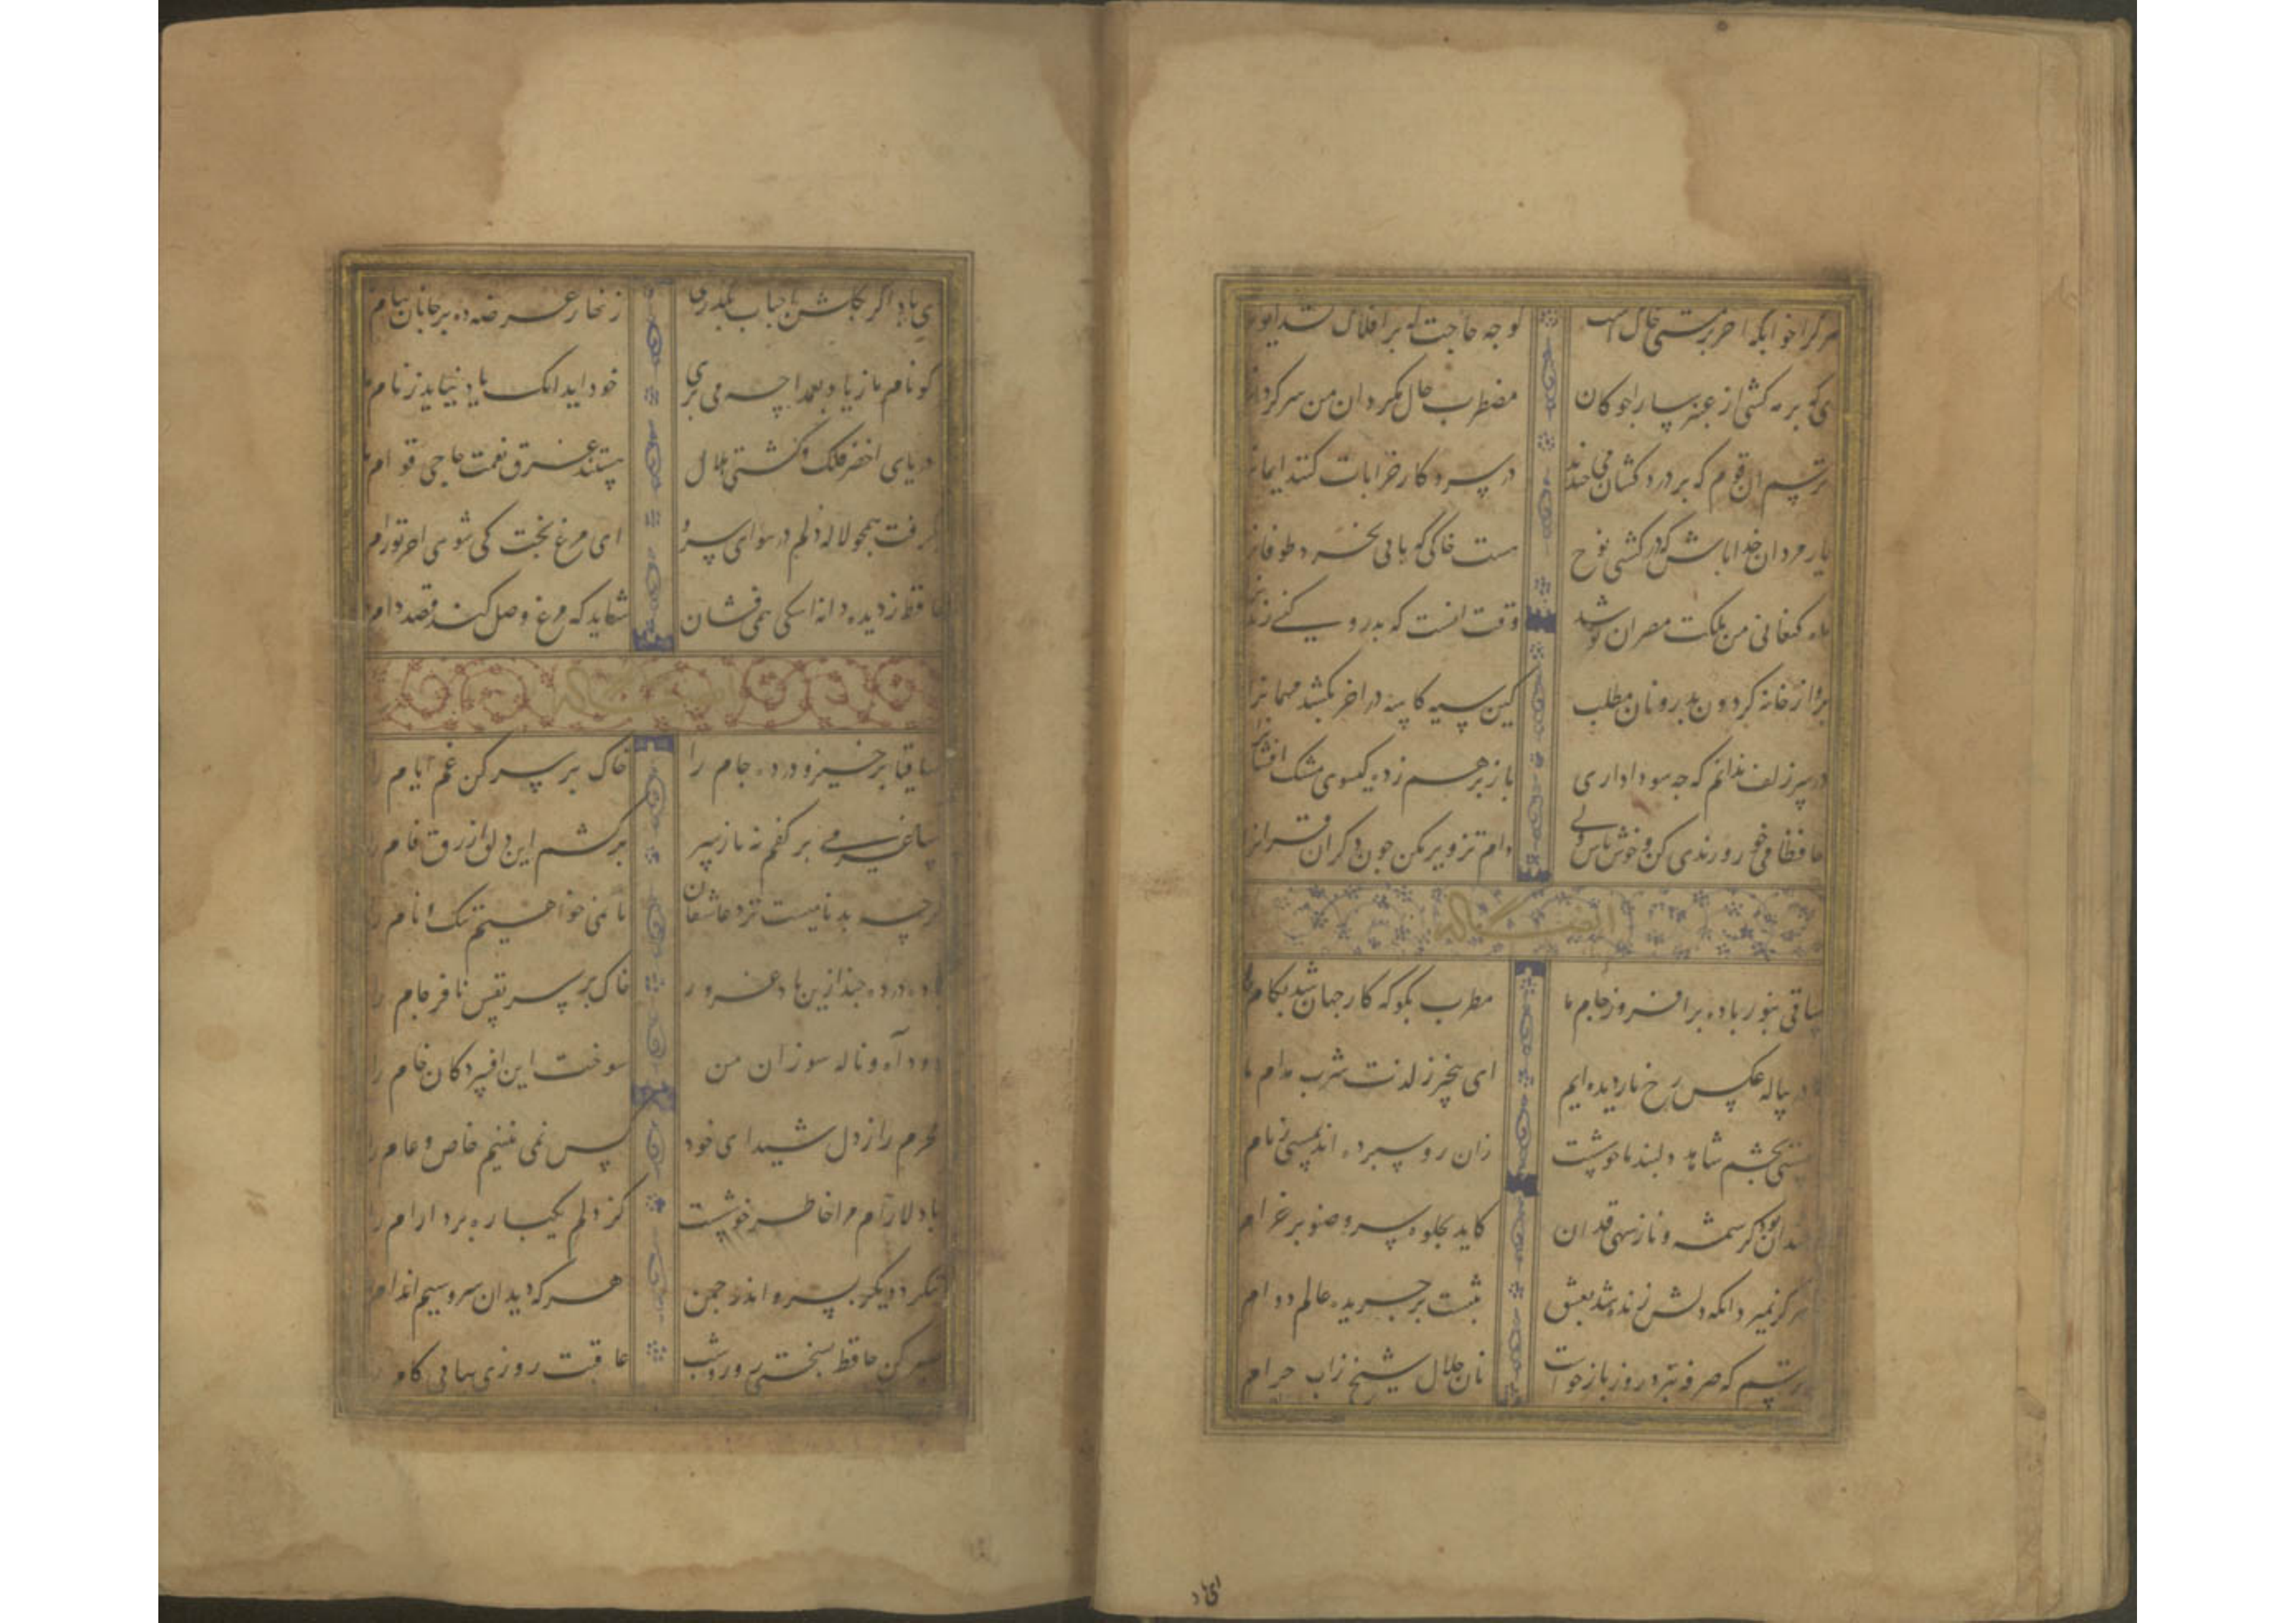 هر کرا خوابگه اخر مشتی خاک است کو چه حاجت که بر افلاک کشد ایوانرا
ای که بر مه کشی از عنبر سارا چوکان مضطرب حال مکردان من سرکردانرا
ترسم ان قوم که بر دردکشان می خندند در سر و کار خرابات کنند ایمانرا
یار مردان خدا باش که در کشتی نوح هست خاکی که بابی نخرد طوفانرا
ماه کنعانی من مملکت مصر ان تو شد وقت انست که بدرود کنی زندانرا
برو از خانه کردون بدر و نان مطلب کین سیه کاسه در اخر بکشد مهمانرا
در سر زلف ندانم که چه سودا داری باز برهم زده کیسوی مشک افشانرا
حافظا می خور و رندی کن و خوش باش ولی دام تزویر مکن چون دکران قرانرا
ایضا
ساقی بنور باده برافروز جام ما مطرب بکو که کار جهان شد بکام ما
ما در پیاله عکس رخ یار دیده ایم ای بیخبر ز لذت شرب مدام ما
مستی بچشم شاهد دلبند ما خوشست زان رو سپرده اند بمستی زمام
چندان بود کرشمه و ناز سهی قدان کاید بجلوه سرو صنوبر خرام
هرکز نمیرد انکه دلش زنده شد بعشق ثبت است بر جریده عالم دوام
ترسم که صرفه نبرد روز بازخواست نان حلال شیخ ز اب حرام
ای باد
ای باد اکر بکلشن احباب بکذری زنهار عرضه ده بر جانان پیام
کو نام ما ز یاد بعمدا چه می بری خود اید انک یاد نیاید ز نام ما
دریای اخضر فلک و کشتی هلال هستند غرق نعمت حاجی قوام ما
بگرفت همچو لاله دلم در هوای سرو ای مرغ بخت کی شوی اخر تو رام
حافظ ز دیده دانه اشکی همی فشان شاید که مرغ وصل کند قصد دام
ساقیا برخیز و درده جام را خاک بر سر کن غم ایام را
ساغر می بر کفم نه تا ز سر برکشم این دلق ازرق فام را
کرچه بدنامیست نزد عاشقان ما نمی خواهیم ننک و نام را
باده درده چند ازین باد غرور خاک بر سر نفس نافرجام را
دود آه و ناله سوزان من سوخت این افسردکان خام را
محرم راز دل شیدای خود کس نمی بینیم خاص و عام را
با دلارام مرا خاطر خوشست کز دلم یکباره برد ارام را
ننکرد دیکر بسرو اندر چمن هر که دید ان سرو سیم اندام
صبر کن حافظ بسختی روز و شب عاقبت روزی بیابی کام